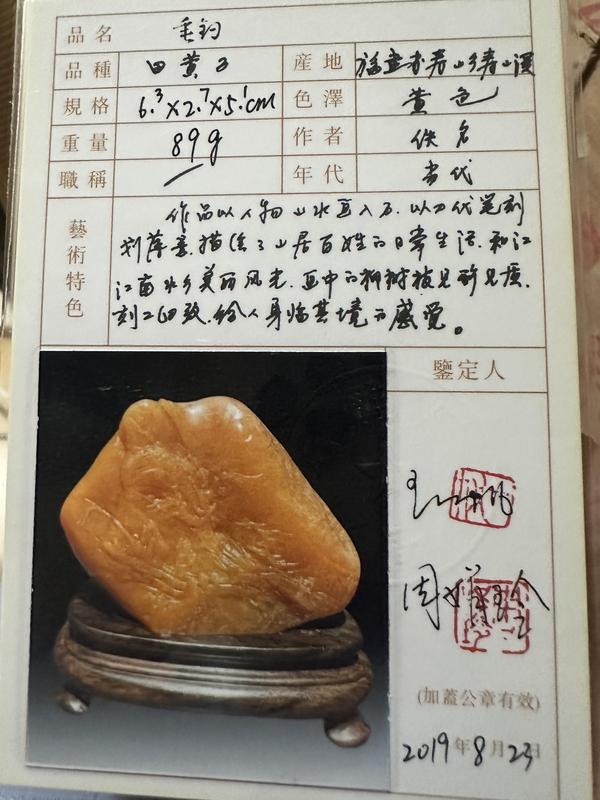 品名 垂钓
品種 田黄石 產地 福建省寿山乡寿山溪
規格 6.3×2.7×5.1cm 色澤 黄色
重量 89g 作者 佚名
職稱 年代 当代
藝術特色
作品以人物山水画入石.以刀代笔刻
划薄意.描绘了山居百姓的日常生活.和江
江南水乡美丽风光.画中的柳树枝
刻工细致.给人身临其境的感觉。
鑒定人
(加蓋公章有效)
2019年8月23日